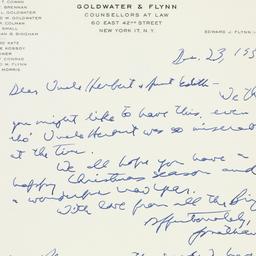 GOLDWATER & FLYNN
COUNSELLORS AT LAW
60 EAST 42ND STREET
NEW YORK 17, N.Y.
T COWAN
L. GOLDWATER
M. GOLDWATER
COLMAN
SMALL
N S BINGHAM
EDWARD J. FLYNN
KATZ
KOSSOY
CONRAD
M. FLYNN
MORRIS
Dec. 23, 195
Dear Uncle Herbert & Aunt Edith —
We th
you might like to have this, even
tho' Uncle Herbert was so miserab
at the time.
We all hope you have a
happy Christmas season and
a wonderful new year.
With love from all the Big
Affectionately,
Jonathan